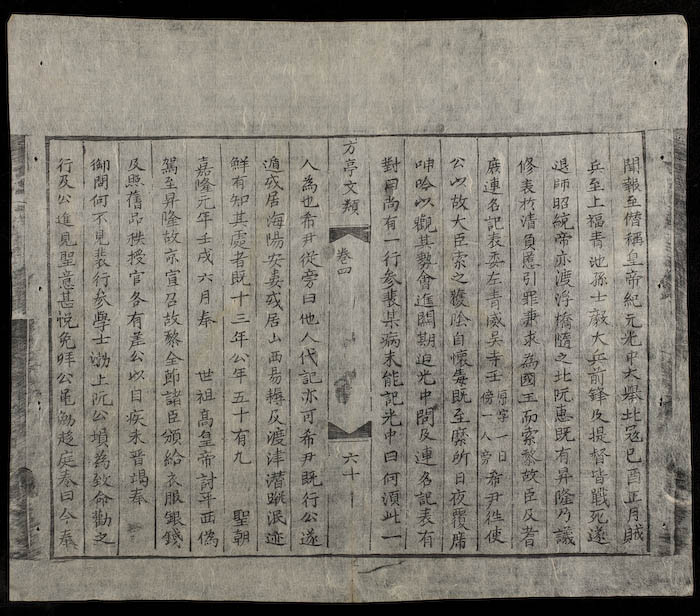 聞報至僭稱皇帝紀元光中大舉北寇己酉正月賊
兵至上福青池孫士毅大兵前鋒及提督皆戰死遂
退師昭統帝亦渡浮橋隨之北阮惠既有昇隆乃議
修表於清負慝引罪兼求為國王而索黎故臣及耆
庶連名記表委左青威吳寺壬
一日
一人旁
希尹徃使
公以故大臣索之獲陰自懷毒既至縻所日夜覆席
呻吟以觀其勢會進關期迫光中閱及連名記表有
對同尚有一行參裴某病未能記光中曰何須此一
方亭文類
卷四
六十
人為也希尹從旁曰他人代記亦可希尹既行公遂
遁或居海陽安妻或居山西易耨及渡津潛跳泯迹
鮮有知其處者既十三年公年五十有九 聖朝
嘉隆元年壬戌六月奉 世祖高皇帝討平西偽
駕至昇隆故京宣召故黎全節諸臣頒給衣服銀錢
及照舊品秩授官各有差公以目疾未晉謁奉
御問何不見裴行參學士泐上阮公塤為致命勸之
行及公進見聖意甚悅免拜公黽勉趍庭奏曰今奉